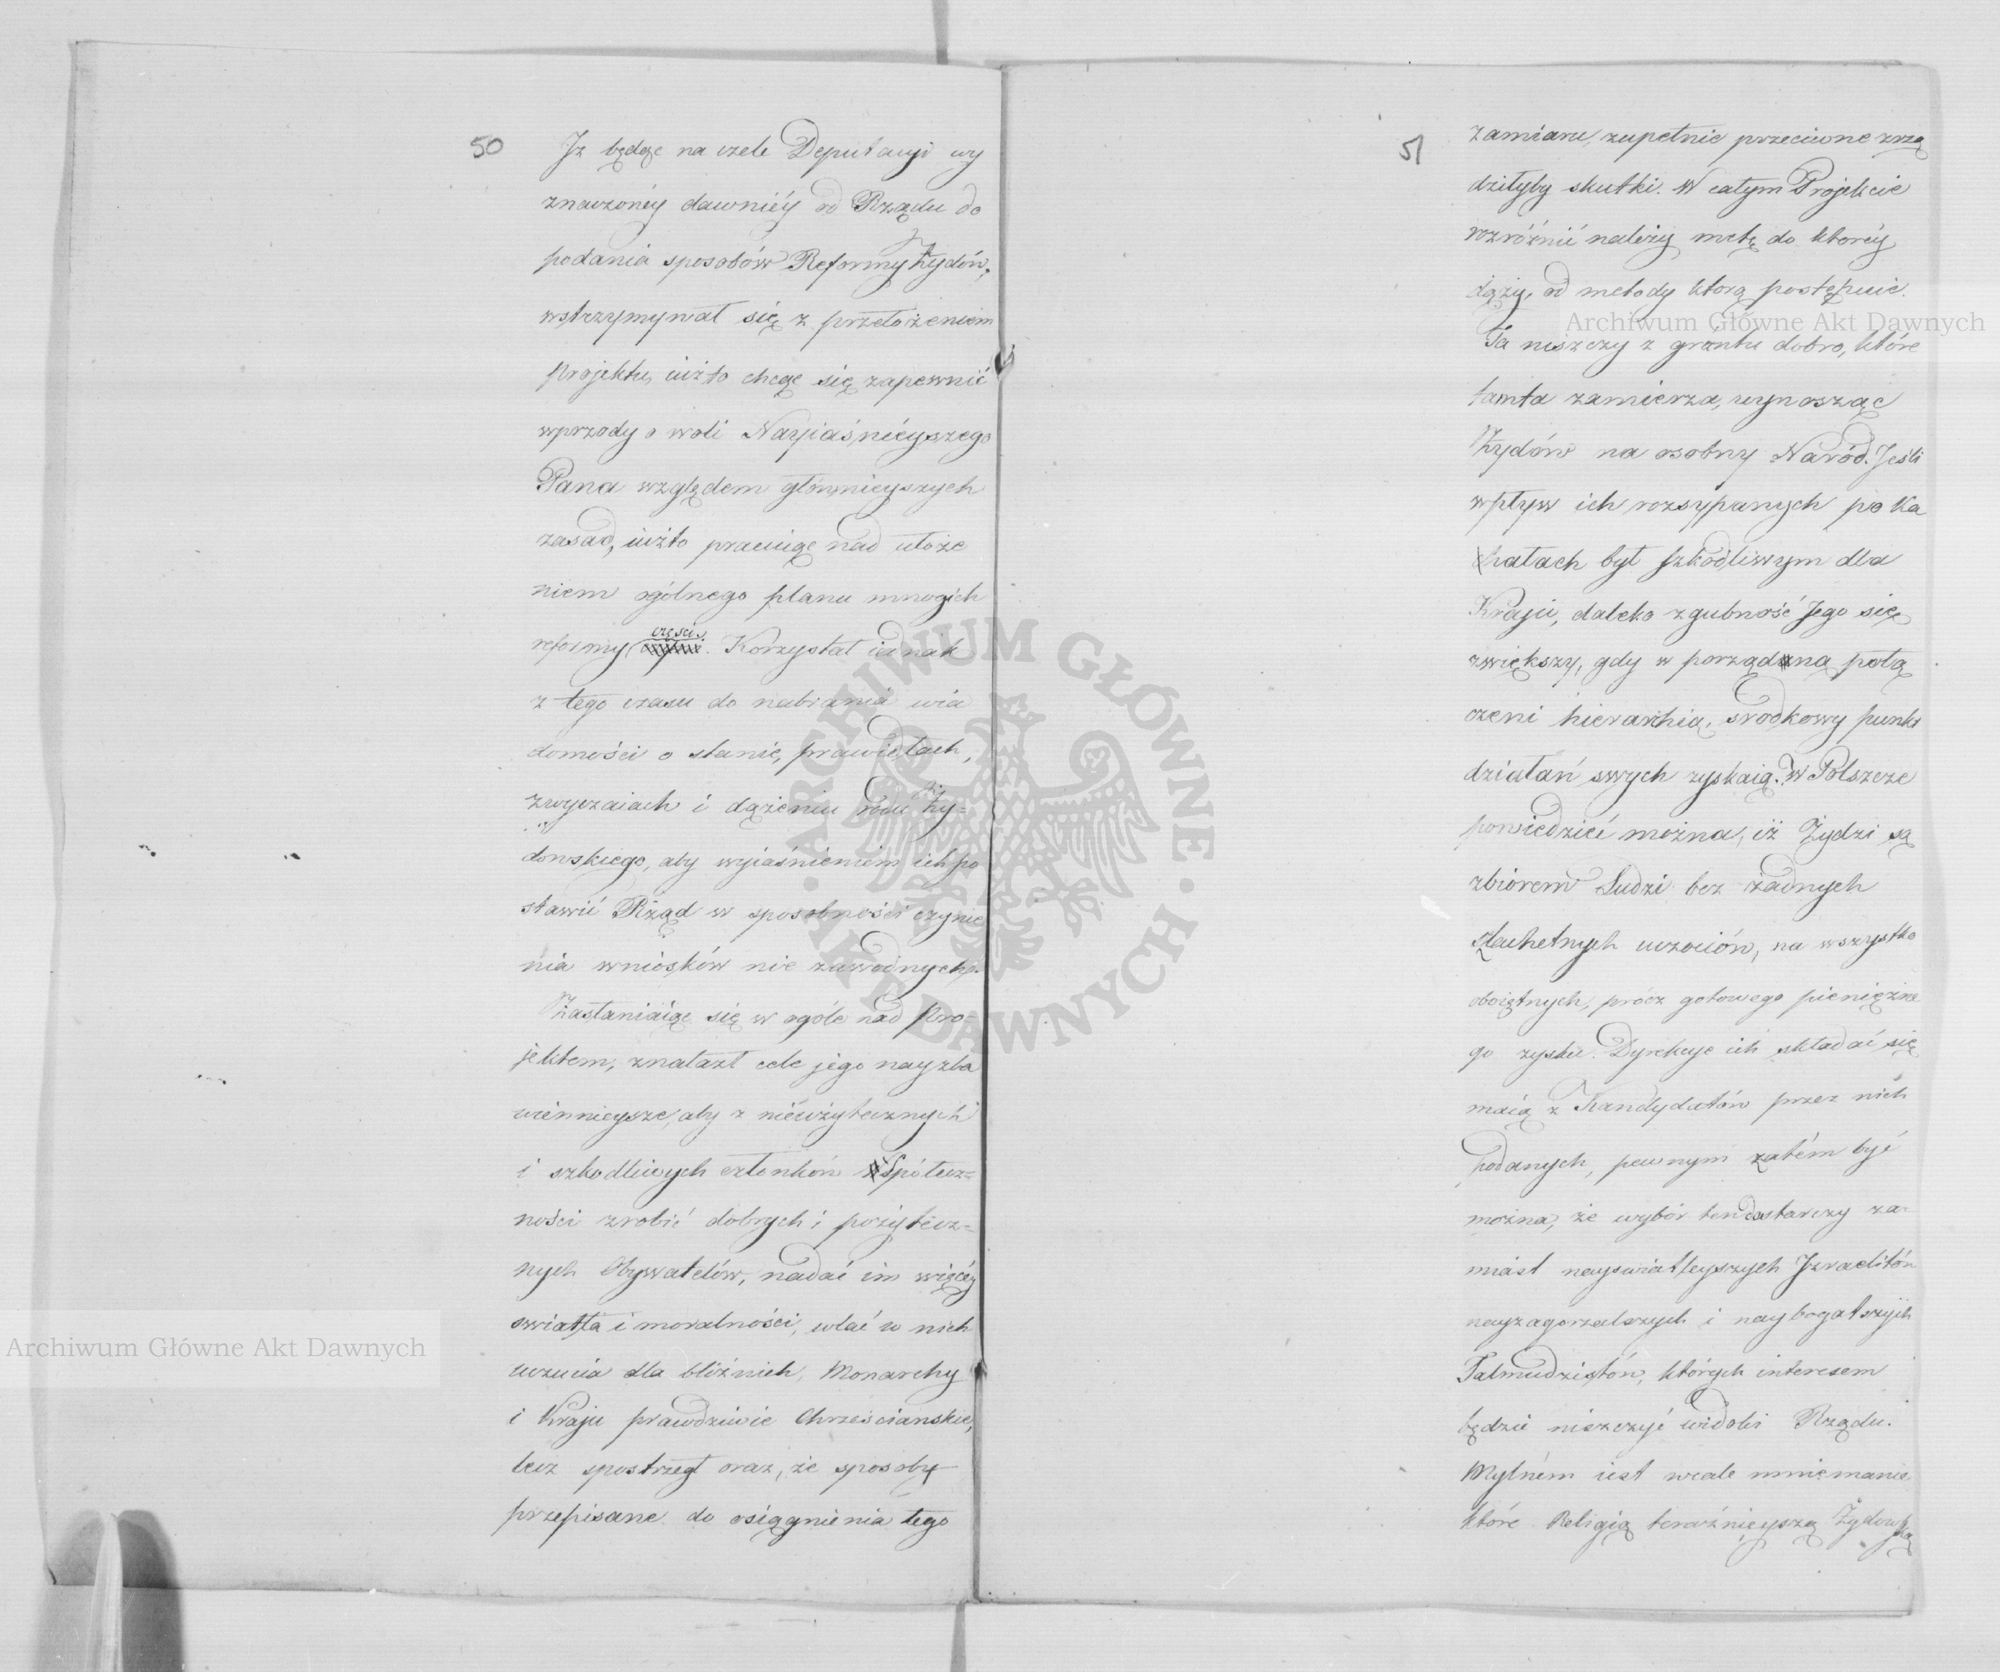 50
Iż będąc na czele Deputacyi wy
znaczonéy dawniéy od Rządu do
podania sposobów Reformy Żydów,
wstrzymywał się z przełożeniem
projektu, iużto chcąc się zapewnić
wprzody o woli Nayiaśniéyszego
Pana względem główniejszych
zasad, iużto pracuiąc nad ułoże
niem ogólnego planu mnogich
reformy części. Korzystał iednak
z tego czasu do nabrania wia
domości o stanie, prawidłach,
zwyczaiach i dążeniu rodu Ży=
dowskiego, aby wyiaśnieniem ich po
stawić Rząd w sposobności czynie
nia wniosków nie zawodnych.
Zastanaiąc się w ogóle nad Pro-
jektem, znalazł cele jego nayzba
wiennieysze, aby z nieużytecznych
i szkodliwych członków Społecz=
ności zrobić dobrych i pożytecz=
nych Obywatelów, nadać im więcéy
swiatła i moralności, wlać w nich
uczucia dla bliźnich, Monarchy
i Kraju prawdziwie Chrześcianskie,
lecz spostrzegł oraz, że sposoby
przepisane do osiągnienia tego
51
zamiaru, zupełnie przeciwne zrzą
dziłyby skutki. W całym Projekcie
rozróżnić należy metę do ktoréy
dąży, od metody ktorą postępuie.
Ta niszczy z gruntu dobro, które
tamta zamierza, wynosząc
Żydów na osobny Naród. Jeśli
wpływ ich rozsypanych po Ka
hałach był szkodliwym dla
Kraju, daleko zgubność Jego się
zwiększy, gdy w porządną połą
czeni hierarchią, srodkowy punkt
działań swych zyskaią. W Polszcze
powiedzieć można, iż Żydzi są
zbiorem Ludzi bez żadnych
szlachetnych uczuciów, na wszystko
oboiętnych, prócz gotowego pieniężne
go zysku. Dyrekcye ich składać się
maią z Kandydatów przez nich
podanych, pewnym zatém być
można, że wybór ten dostarczy za-
miast nayswiatleyszych Izraelitów
nayzagorzalszych i naybogatszych
Talmudzistów, których interesem
będzie niszczyć widoki Rządu.
Mylném iest wcale mniemanie
które Religią teraźnieyszą Żydowską
Archiwum Główne Akt Dawnych
Archiwum Główne Akt Dawnych
ARCHIWUM GŁÓWNE
AKT DAWNYCH